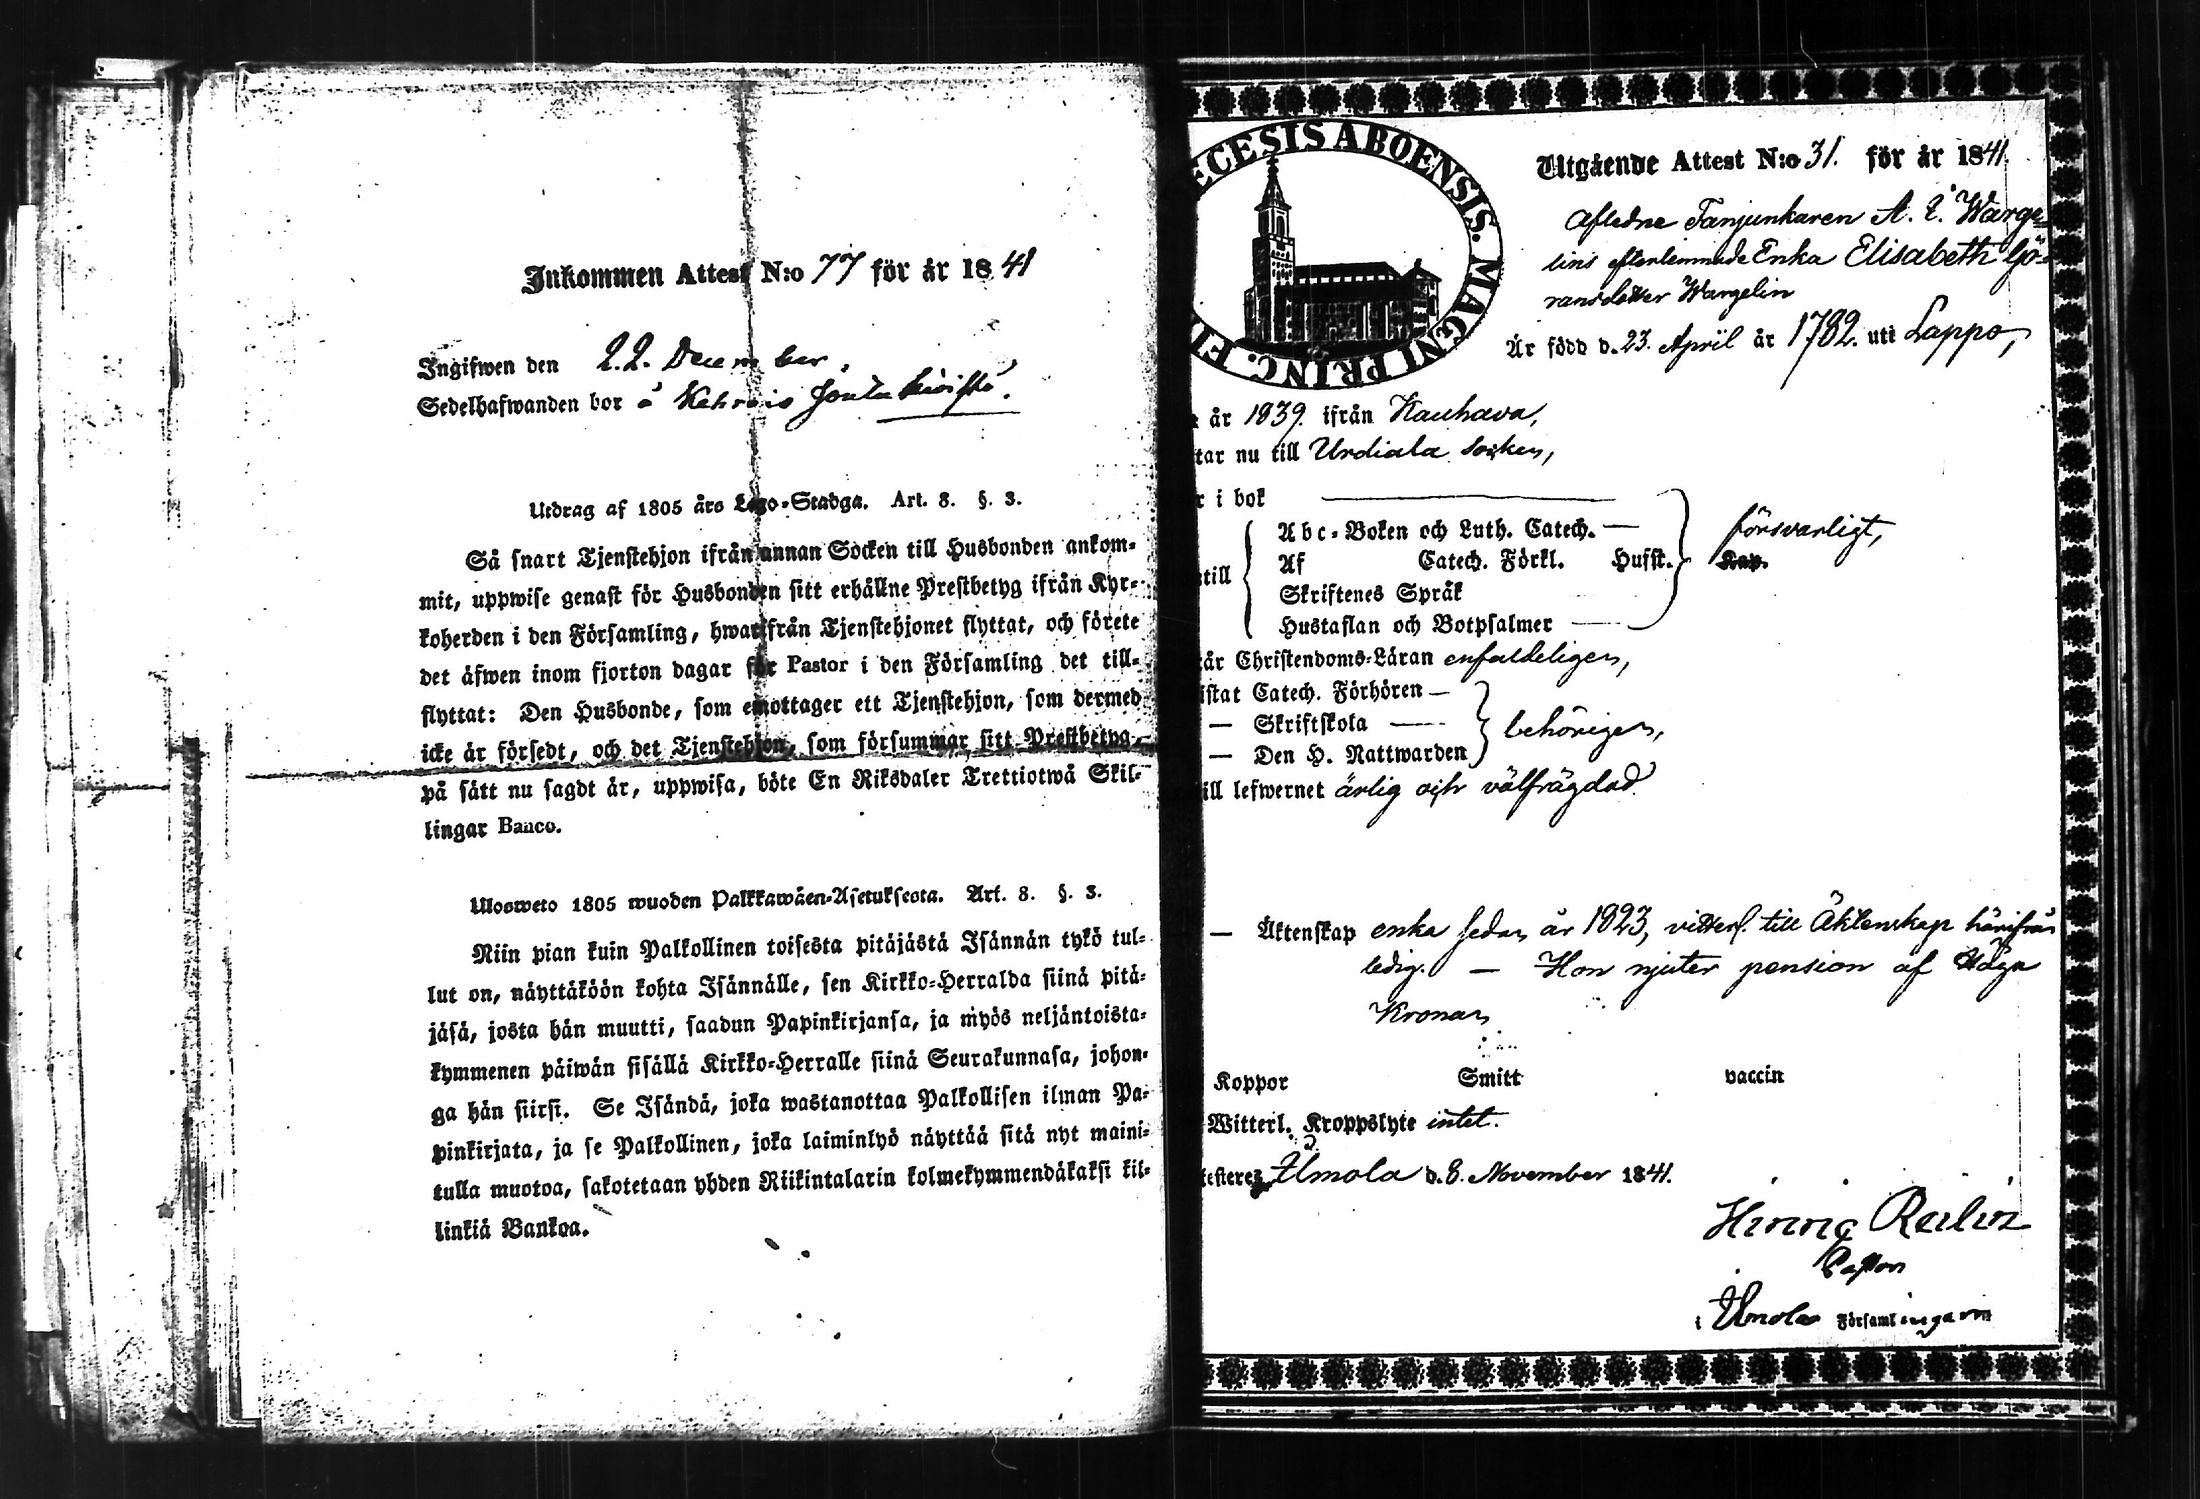 Inkommen Attest N:o 77 för år 1841
Ingifwen den 22. December.
Sedelhafwanden bor å
Utdrag af 1805 års Lego-Stadga. Art. 8. §. 3.
Så snart Tjenstehjon ifrån annan Socken till Husbonden ankom-
mit, uppwise genast för Husbonden sitt erhållne Prestbetyg ifrån Kyr-
koherden i den Församling, hwarifrån Tjenstehjonet flyttat, och förete
det äfwen inom fjorton dagar för Pastor i den Församling det till-
flyttat: Den Husbonde, som emottager ett Tjenstehjon, som dermed
icke är försedt, och det Tjenstehjon, som försummar sitt Prestbetyg,
på sätt nu sagdt är, uppwisa, böte En Riksdaler Trettiotwå Skil-
lingar Banco.
Ulosweto 1805 wuoden Palkkawäen-Asetuksesta. Art. 8. §. 3.
Niin pian kuin Palkollinen toisesta pitäjästä Isännän tykö tul-
lut on, näyttäköön kohta Isännälle, sen Kirkko-Herralda siinä pitä-
jäsä, josta hän muutti, saadun Papinkirjansa, ja myös neljäntoista-
kymmenen päiwän sisällä Kirkko-Herralle siinä Seurakunnasa, johon-
ga hän siirsi. Se Isändä, joka wastanottaa Palkollisen ilman Pa-
pinkirjata, ja se Palkollinen, joka laiminlyö näyttää sitä nyt maini-
tulla muotoa, sakotetaan yhden Riikintalarin kolmekymmendäkaksi kil-
linkiä Bankoa.
ECESIS ABOENSIS. MAGNI PRINC. FI
Utgående Attest N:o 31. för år 1841.
Aflidne Fanjunkaren A. E. Warge-
lins efterlemnade Enka Elisabeth Gö-
ransdotter Wargelin
Är född d. 23. April år 1782. uti Lappo,
år 1839. ifrån Kauhava,
tar nu till Urdiala socken,
r i bok
till
Abc-Boken och Luth. Catech. —
Af Catech. Förkl. Husst.
försvarligt,
Skriftenes Språk
Hustaflan och Botpsalmer —
tår Christendoms-Läran enfaldeligen,
istat Catech. Förhören —
— Skriftskola —
behörigen,
— Den H. Nattwarden
ill lefwernet ärlig och välfrägdad.
— Äktenskap enka sedan år 1823, vitterl. till Äktenskap härifrån
ledig. — Hon njuter pension af Höga
Kronan
Koppor Smitt vaccin
Witterl. Kroppslyte intet.
testeres Ilmola d. 8. November 1841.
Pastor
i Ilmola Församlingarne